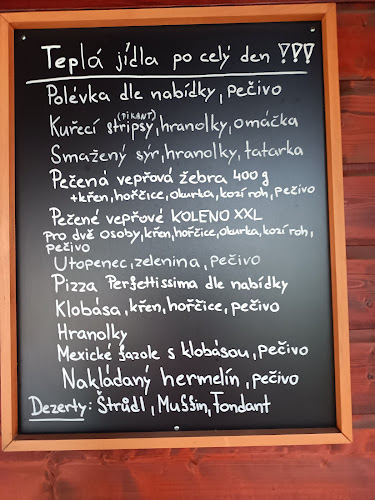 Teplá jídla po celý den !!!
Polévka dle nabídky, pečivo
(PIKANT)
Kuřecí stripsy, hranolky, omáčka
Smažený sýr, hranolky, tatarka
Pečená vepřová žebra 400g
+křen, hořčice, okurka, kozí roh, pečivo
Pečené vepřové KOLENO XXL
pro dvě osoby, křen, hořčice, okurka, kozí roh,
pečivo
Utopenec, zelenina, pečivo
Pizza Perfettissima dle nabídky
Klobása, křen, hořčice, pečivo
Hranolky
Mexické fazole s klobásou, pečivo
Nakládaný hermelín, pečivo
Dezerty: Štrůdl, Muffin, Fondant